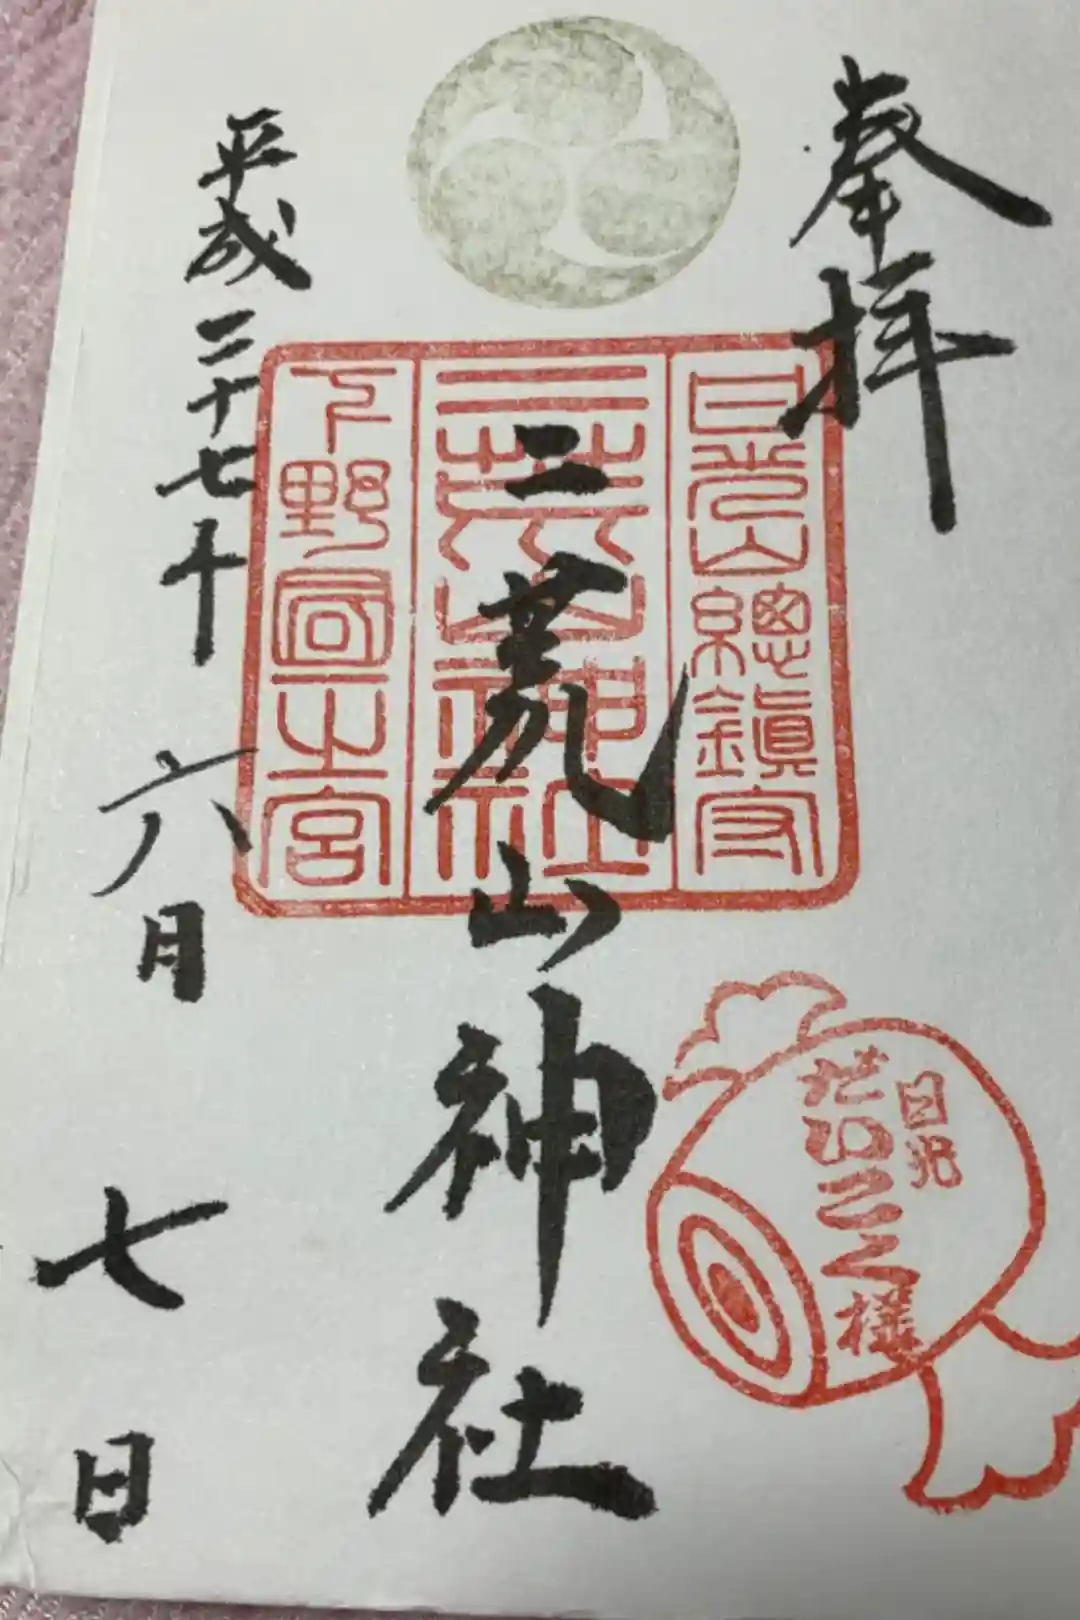 奉拝
日光山總鎮守
二荒山神社
下野國一之宮
二荒山神社
平成二十七年
六月
七日
日光
様